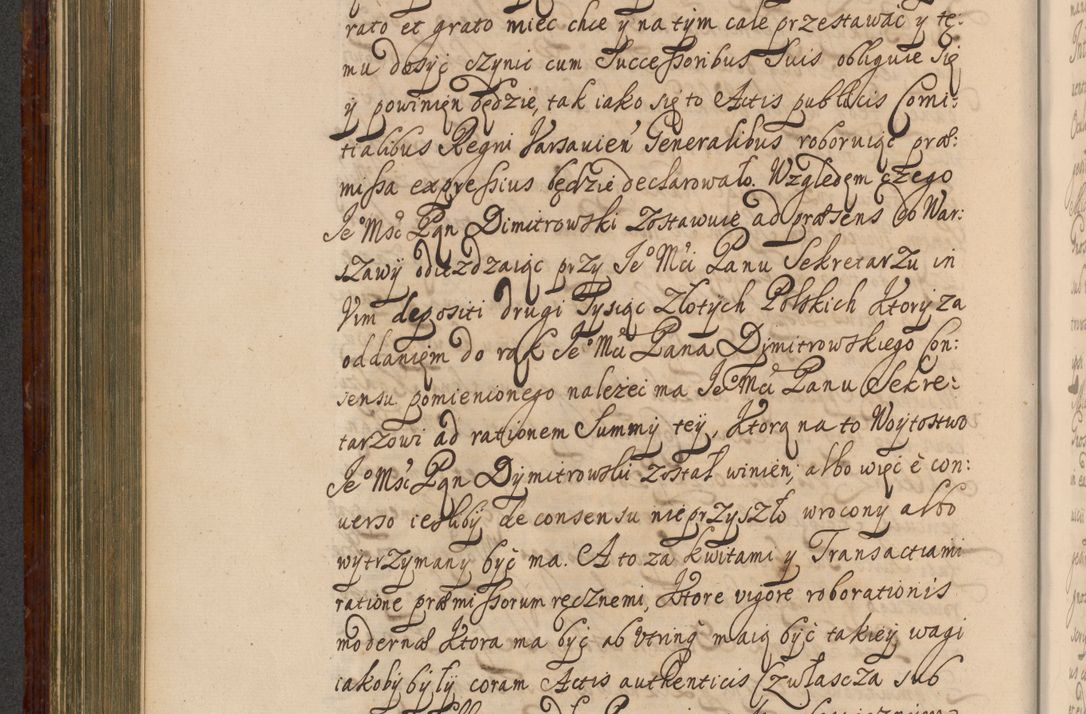 rato et grato mieć chce y na tym cale przestawać y te-
mu dosyć czynić cum Successoribus Suis obliguie się
y powinien będzie, tak iako się to Actis publicis Comi-
tialibus Regni Varsavien Generalibus roboruiąc præ-
missa expressius będzie declarowało. Względem czego
Je° Mść Pan Dimitrowski zostawuie ad præsens do War-
szawy odiezdzaiąc przy Je° Mći Panu Sekretarzu in
Vim depositi drugi Tysiąc Złotych Polskich ktory za
oddaniem do rąk Je° Mći Pana Dymitrowskiego Con-
sensu pomienionego nalezeć ma Je° Mći Panu Sekre-
tarzowi ad rationem Summy tey, ktorą na to Woytostwo
Je° Mść Pan Dymitrowski został winien, albo więc è con-
verso ieśliby de consensu nie przyszło wrocony albo
wytrzymany być ma. A to za kwitami y Transactiami
ratione præmissorum ręcznemi, ktore vigore roborationis
modernæ ktora ma być ab vtrinq maią być takiey wagi
iakoby były coram Actis authenticis (zwłascza sub